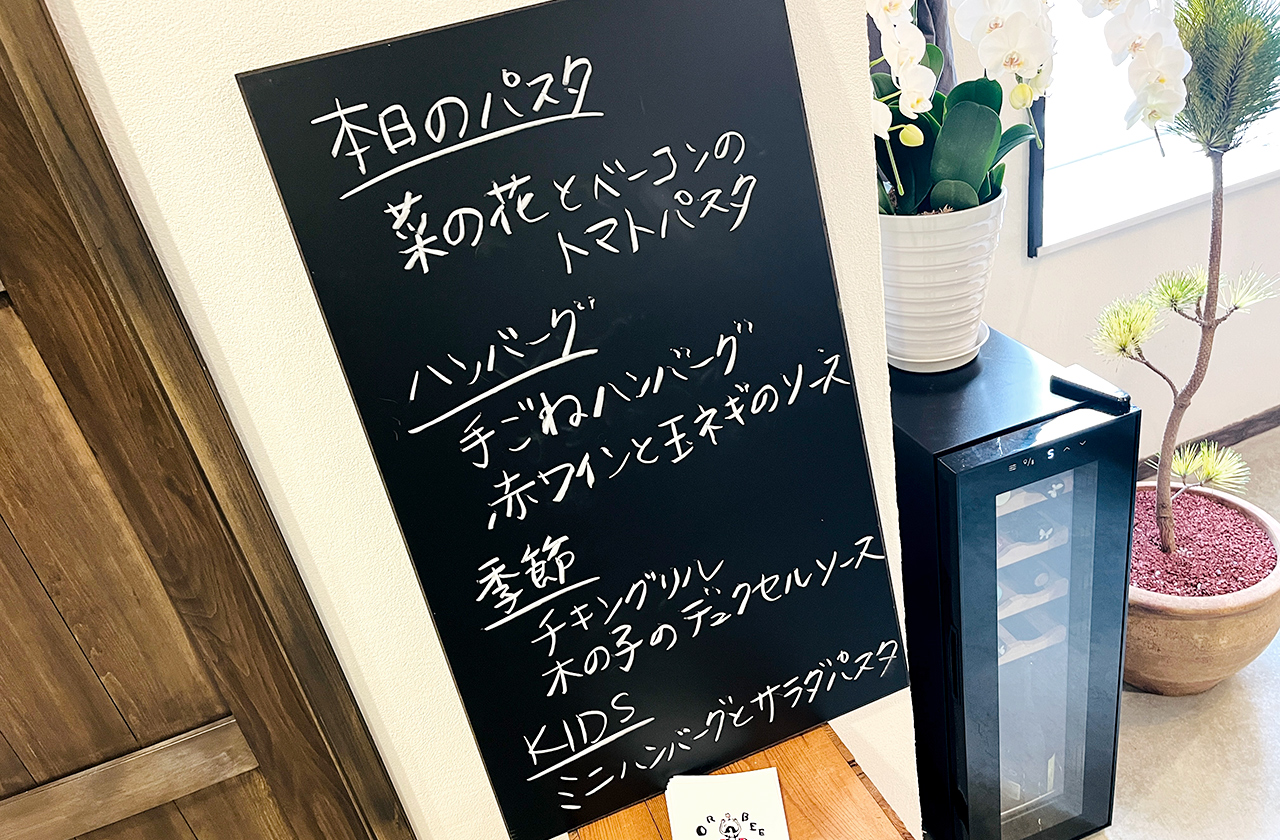 本日のパスタ
菜の花とベーコンの
トマトパスタ
ハンバーグ
手ごねハンバーグ
赤ワインと玉ネギのソース
季節
チキングリル
木の子のデュクセルソース
KIDS
ミニハンバーグとサラダパスタ
5
OR BEE